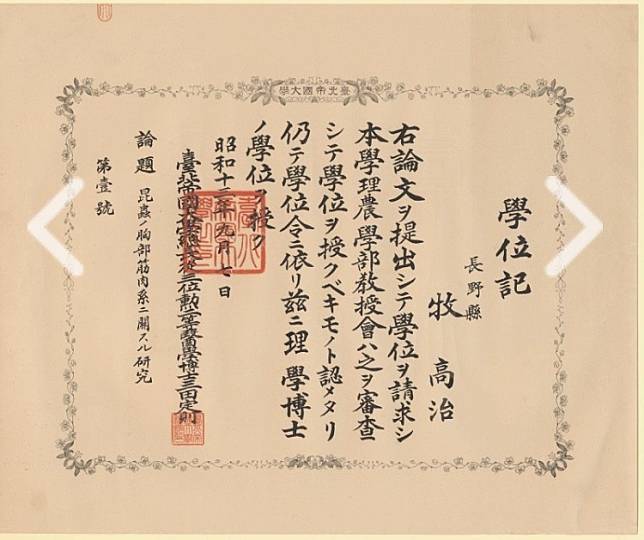 臺北帝國大學
學位記
長野縣
牧 高治
右論文ヲ提出シテ學位ヲ請求シ
本學理農學部教授會ハ之ヲ審査
シテ學位ヲ授クベキモノト認メタリ
仍テ學位令ニ依リ茲ニ理 學博士
ノ學位ヲ授ク
昭和十三年九月七日
臺北帝國大學總長 三位勳 等醫學博士三田定則
論題 昆蟲ノ胸部筋肉系ニ關スル研究
第壹號